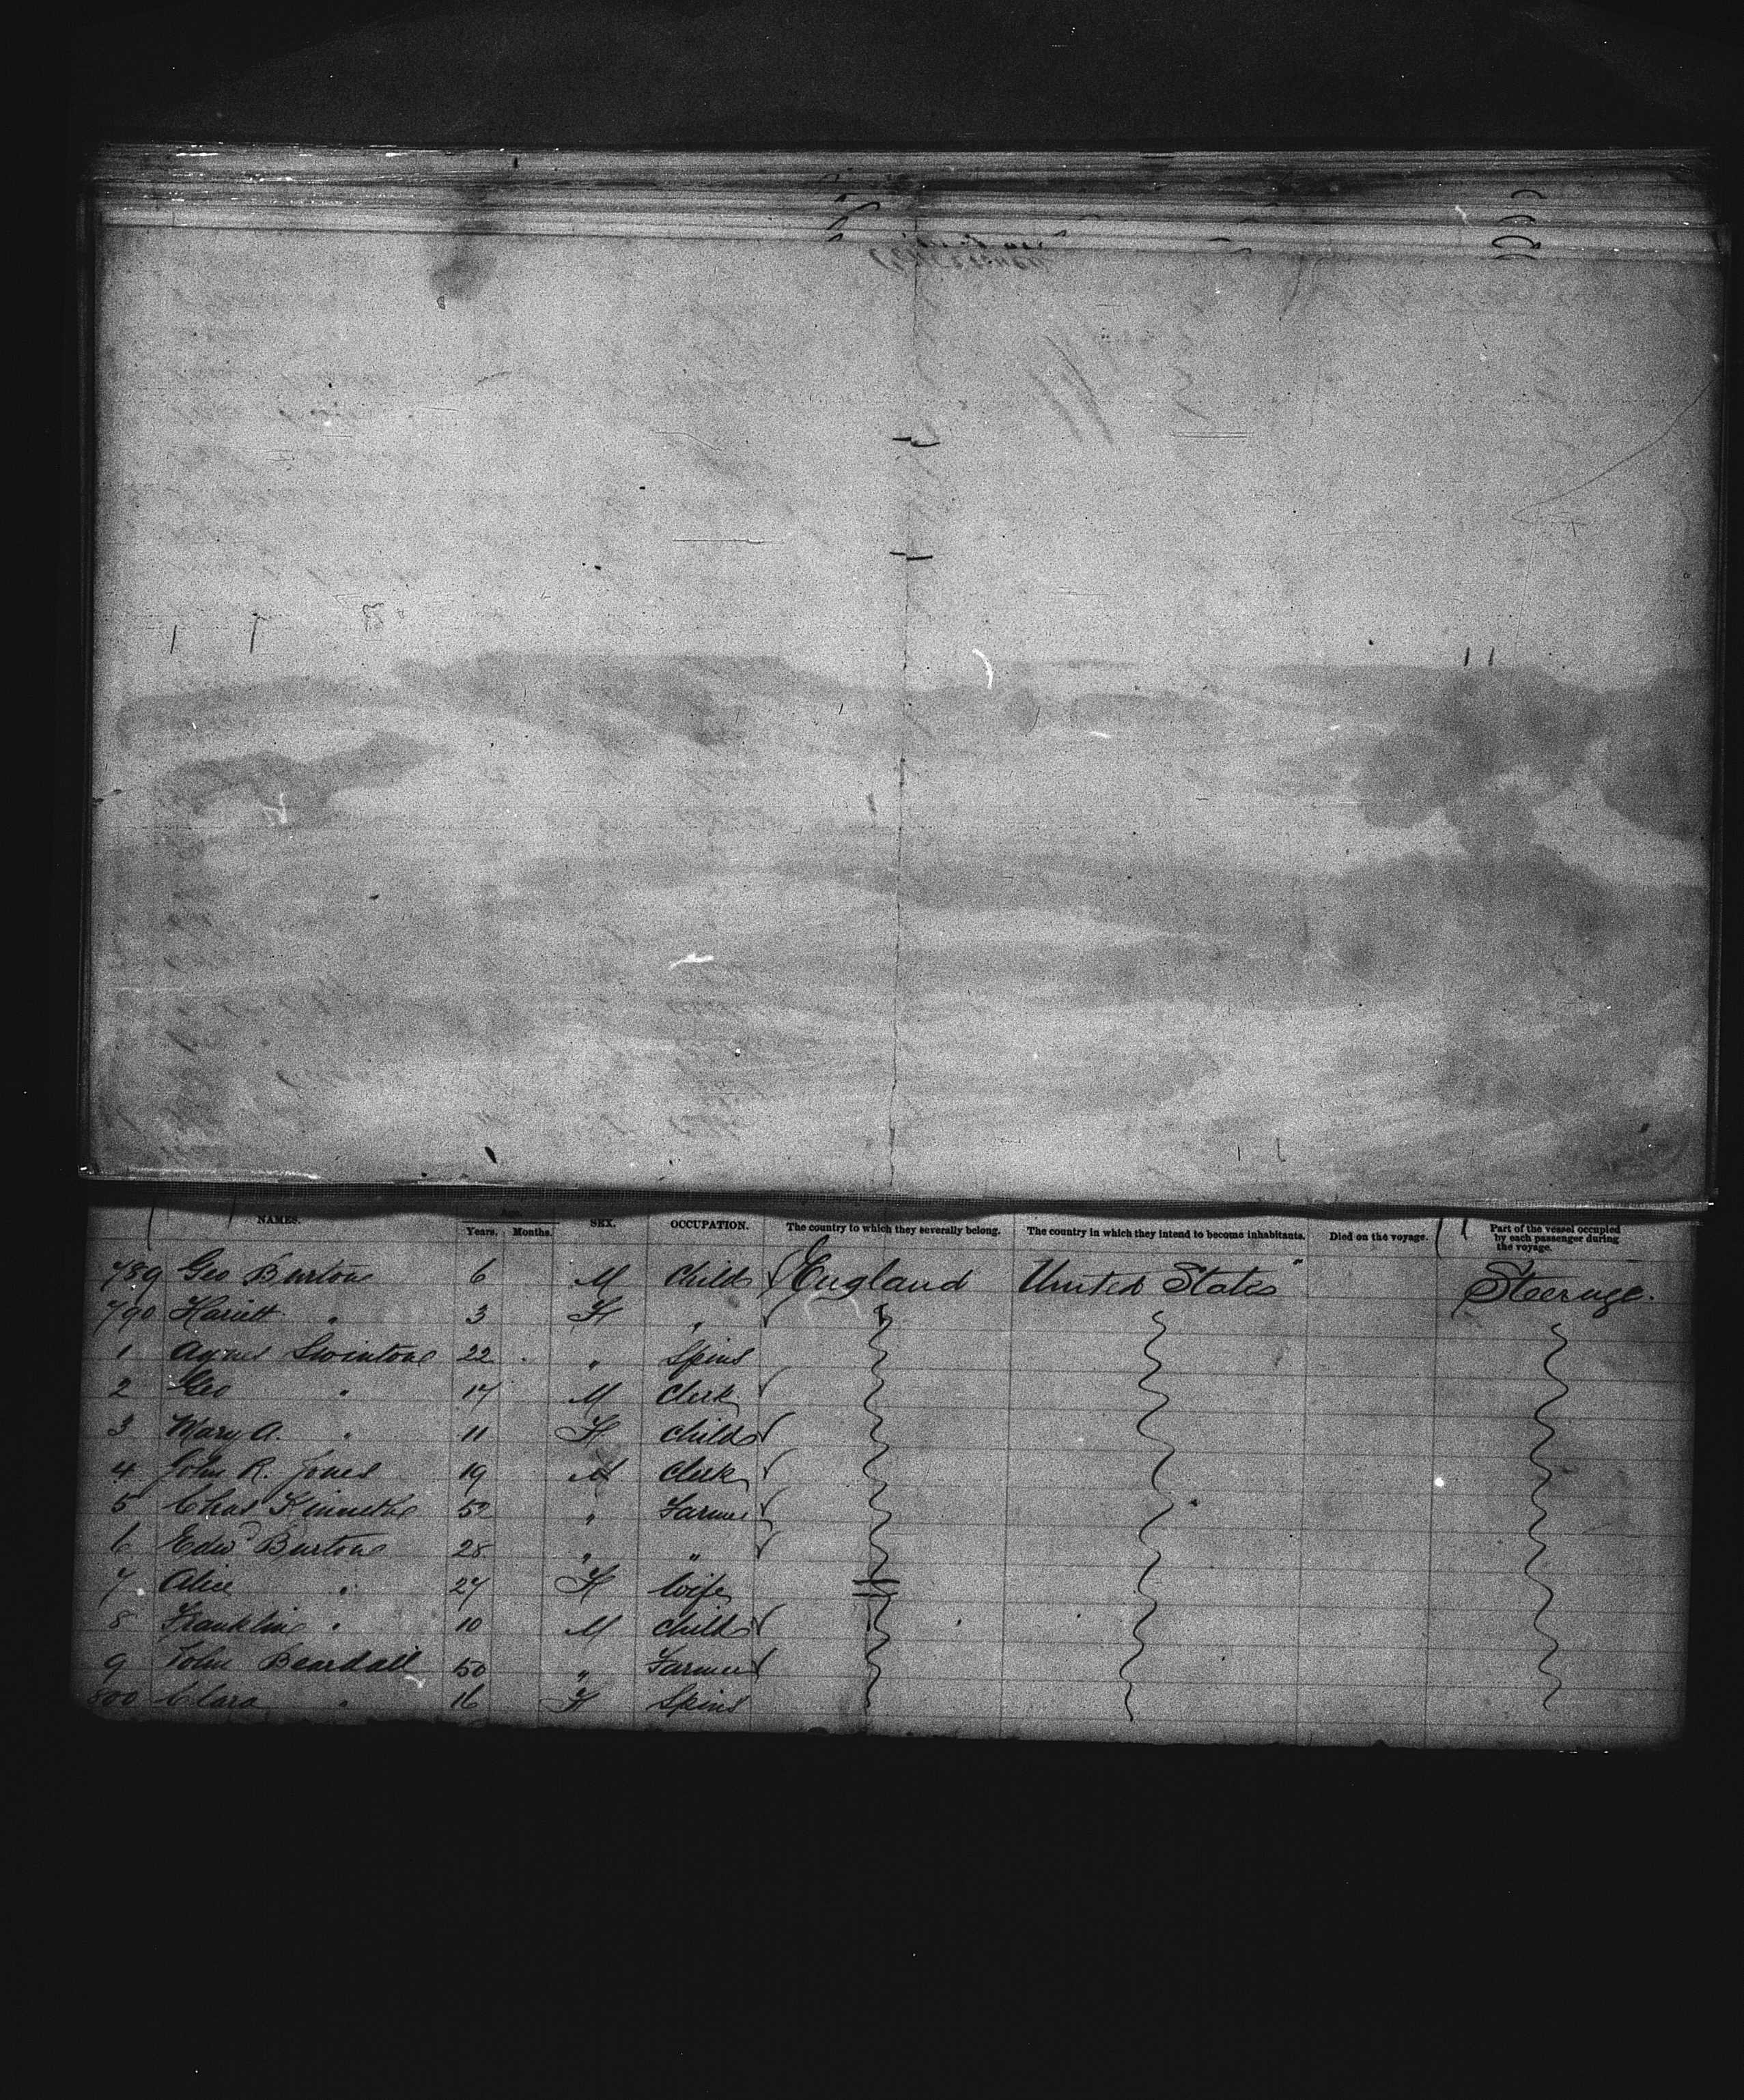 NAMES. Years. Months. SEX. OCCUPATION. The country to which they severally belong. The country in which they intend to become inhabitants. Died on the voyage. Part of the vessel occupied by each passenger during the voyage.
789 Geo Burton 6 M Child England United States Steerage.
790 Hariett " 3 F "
1 Agnes Swinton 22 " Spins
2 Geo " 17 M Clerk
3 Mary A. " 11 F Child
4 John R. Jones 19 M Clerk
5 Chas 52 " Farmer
6 Edwd Burton 28 " "
7 Alice " 27 F Wife
8 Franklin " 10 M Child
9 John Beardall 50 " Farmer
800 Clara " 16 F Spins